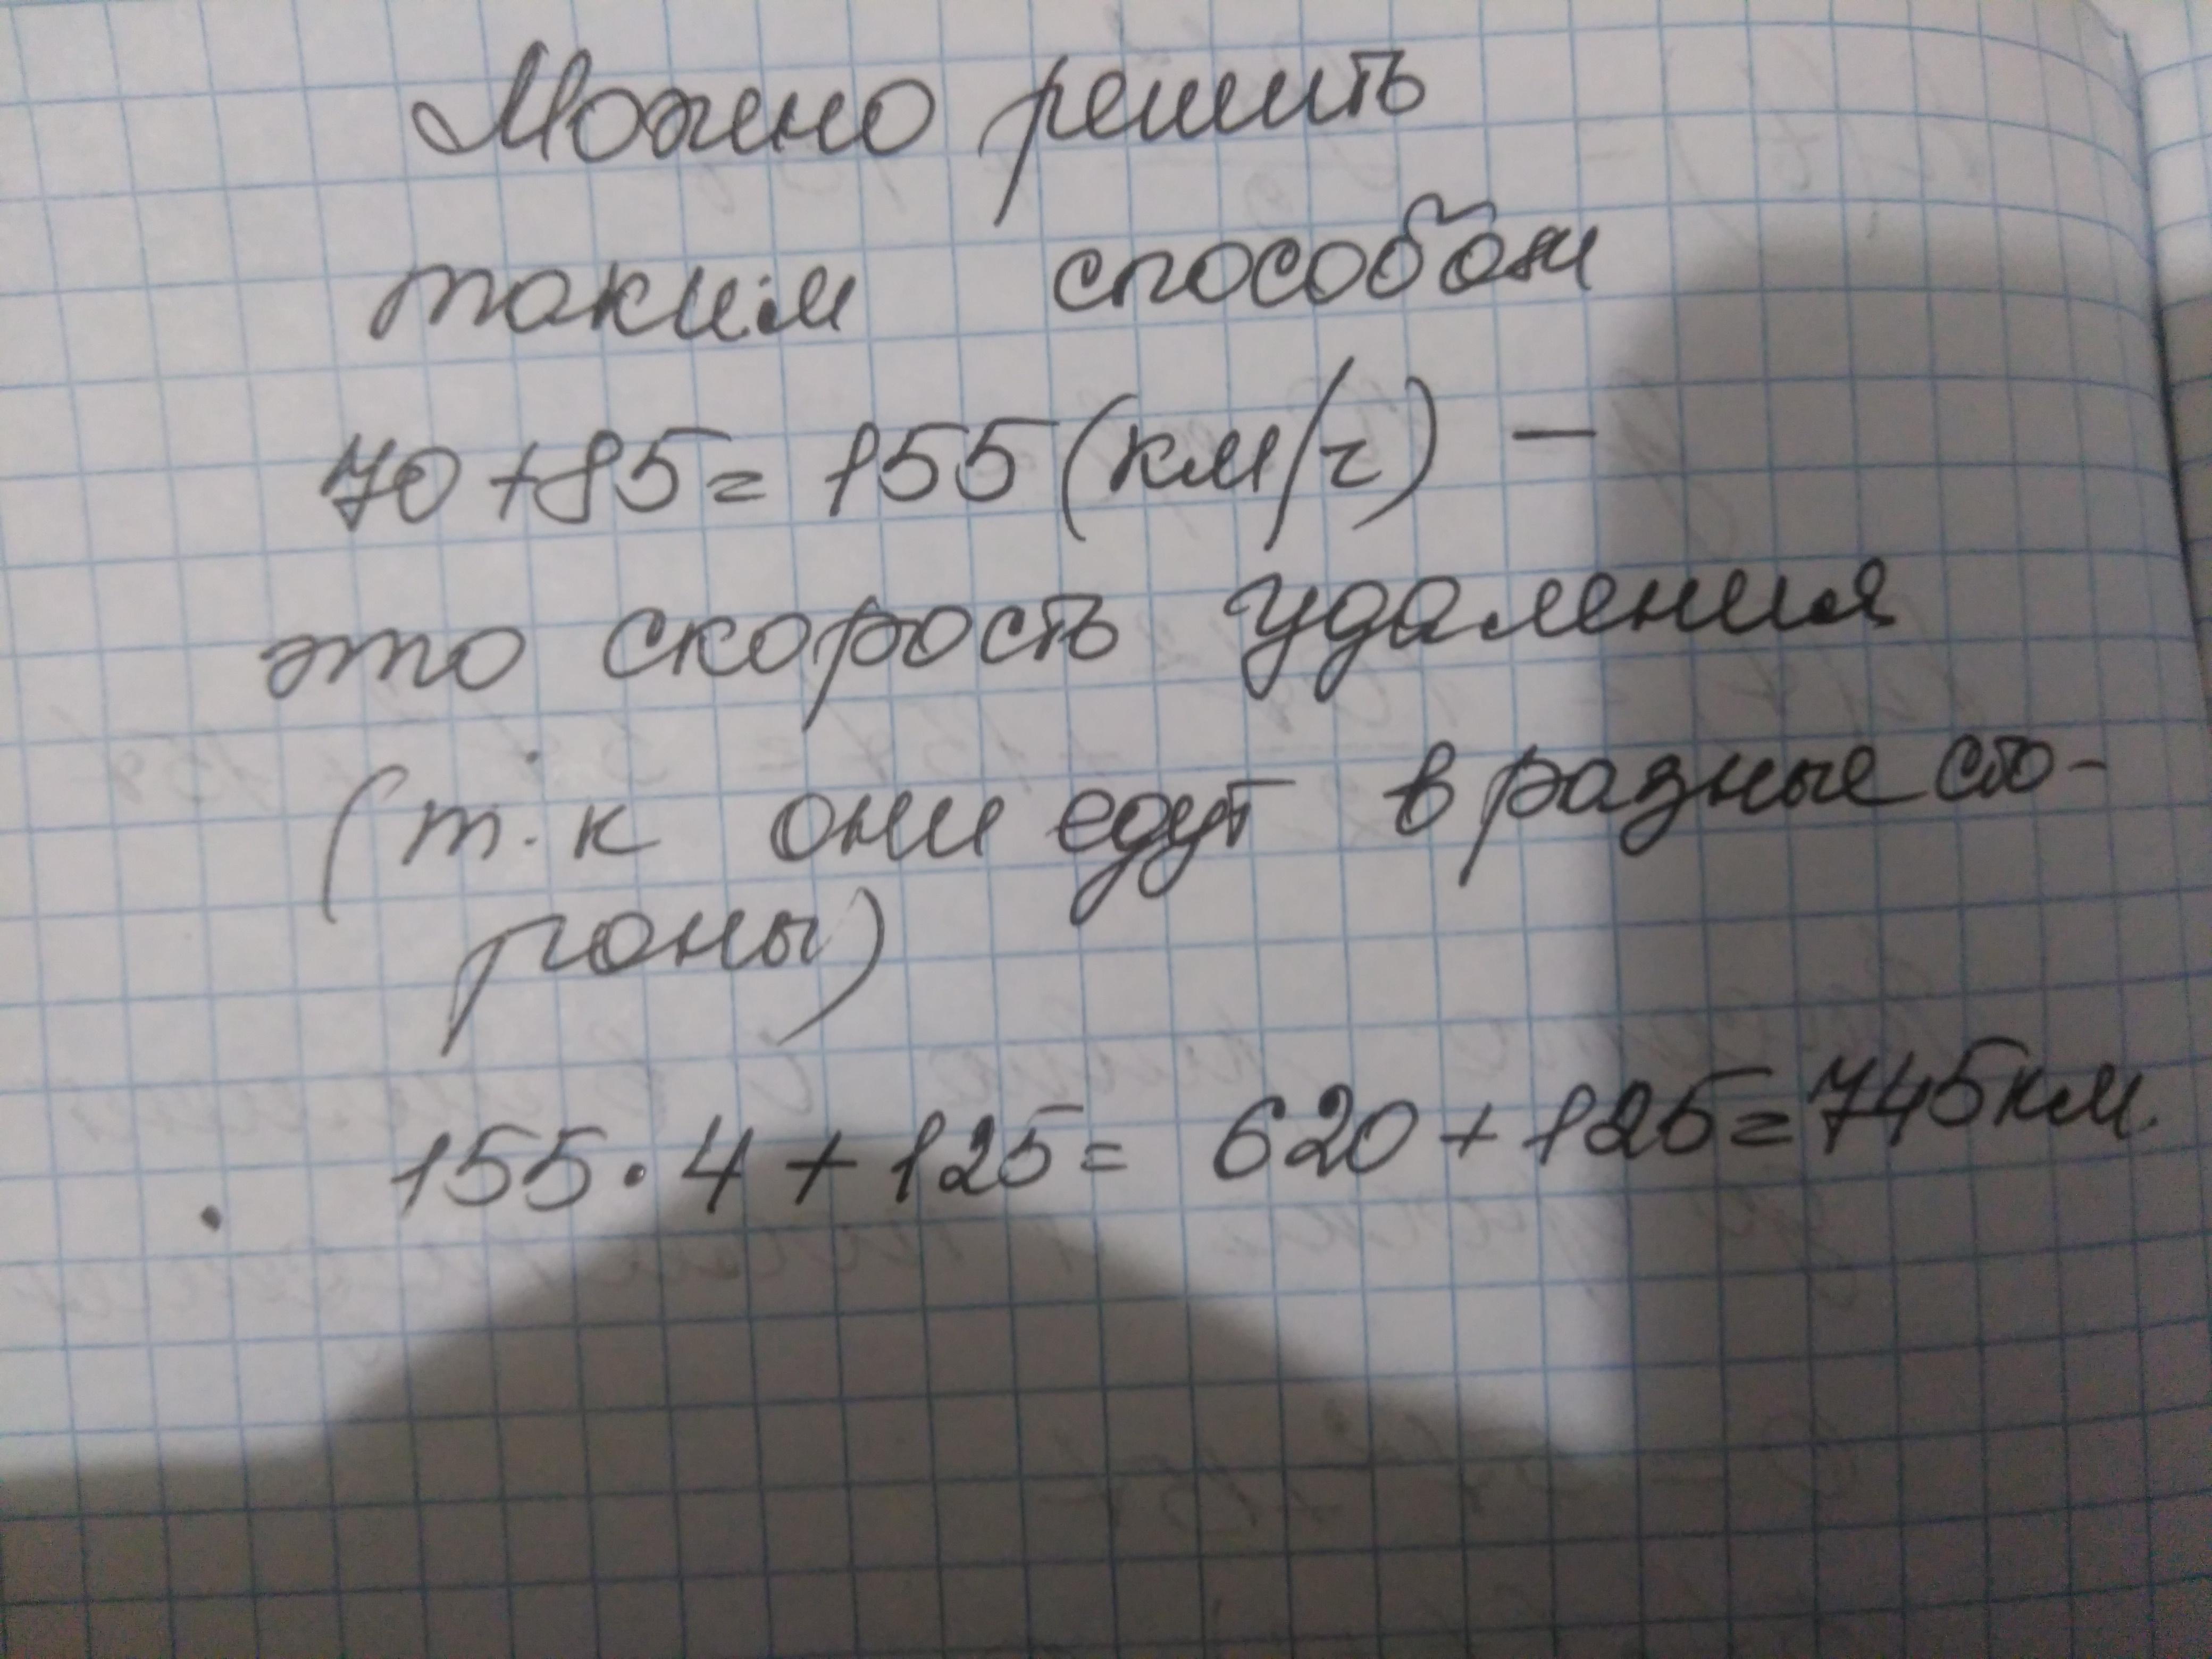 Можно решить
таким способом
70+85= 155 (км/ч) –
это скорость удаления
(т.к они едут в разные сто-
роны)
155·4+125= 620+125=745км.